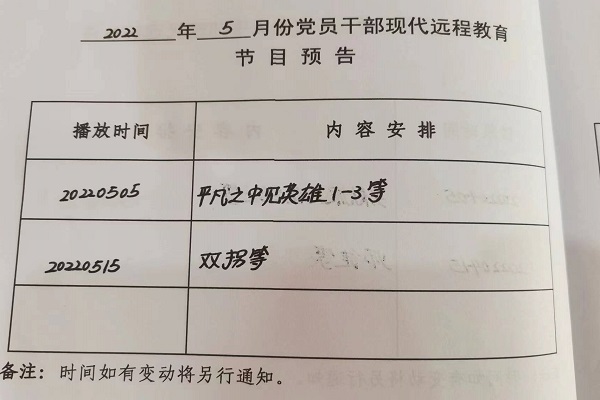 2022 年 5 月份党员干部现代远程教育
节目预告
播放时间 内容安排
20220505 平凡之中见英雄1-3等
20220515 双拐等
备注：时间如有变动将另行通知。